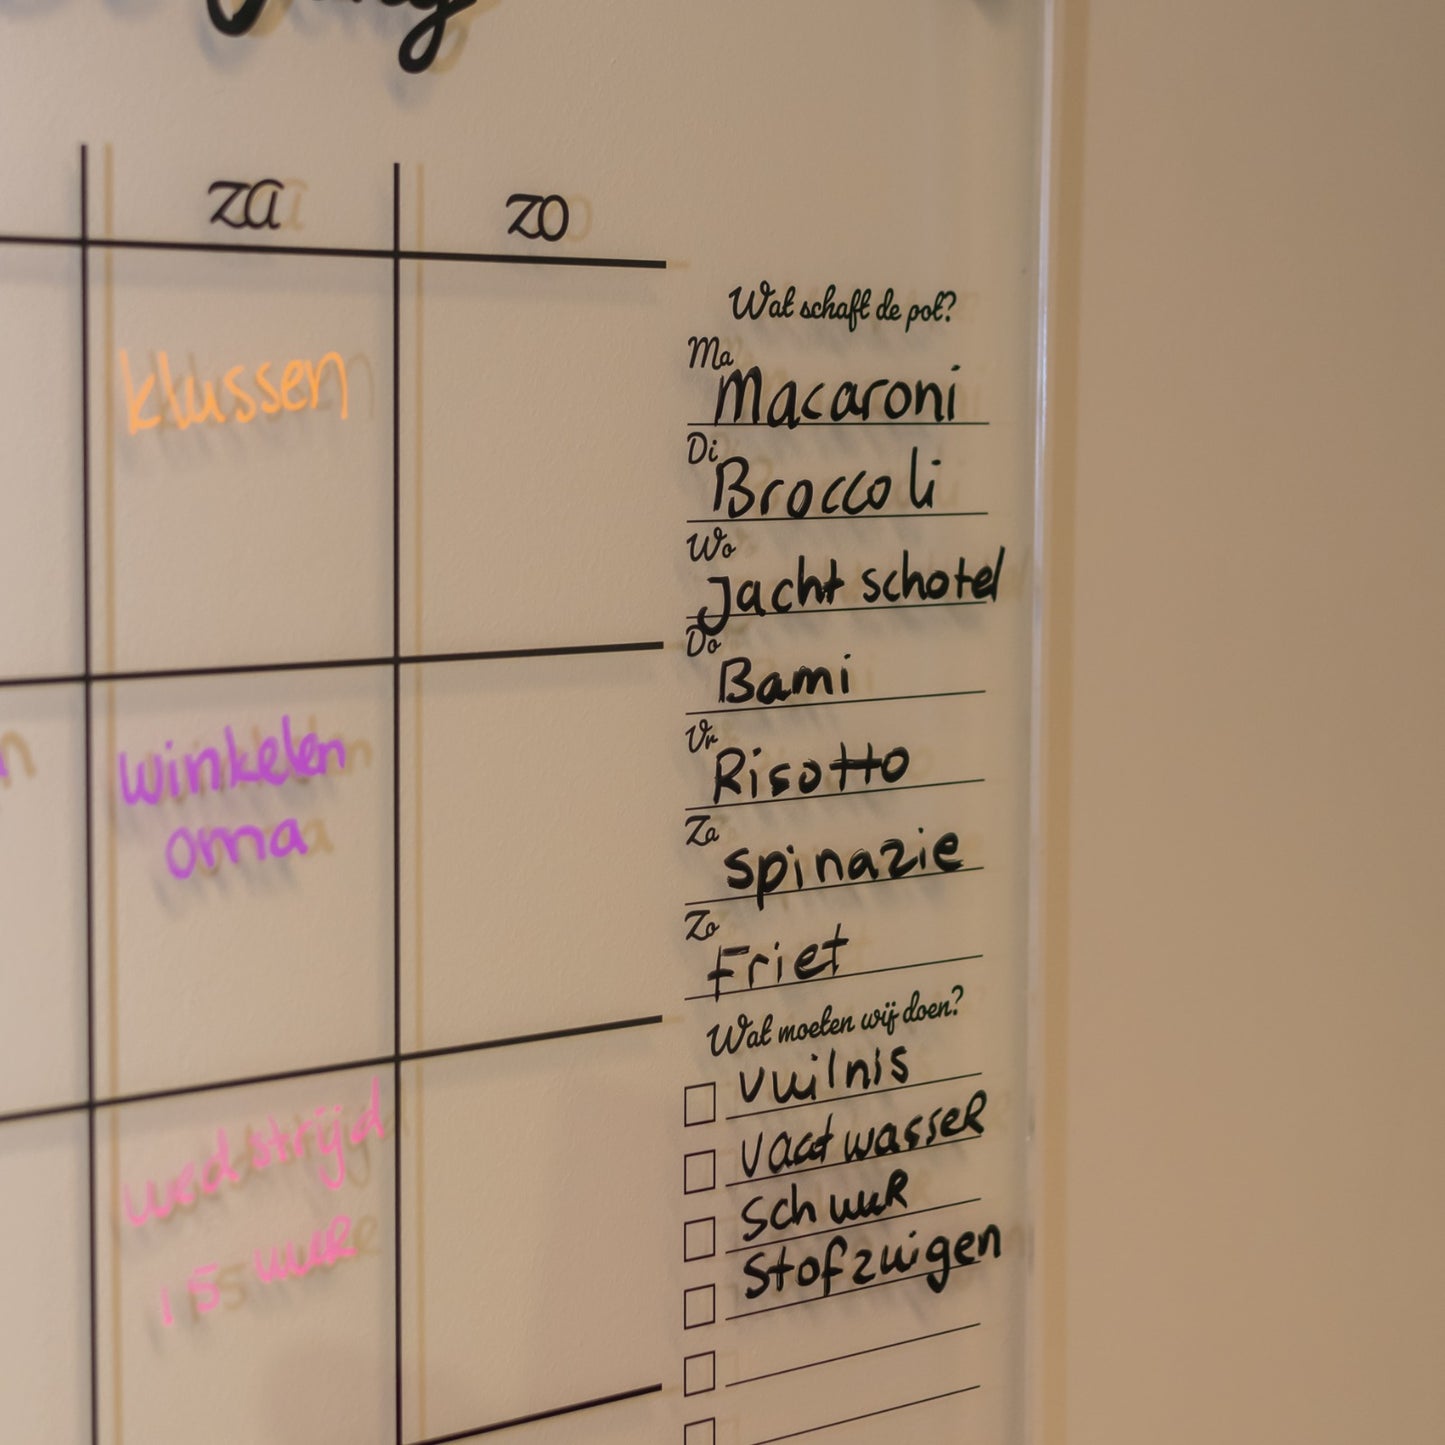 za
zo
klussen
winkelen
oma
wedstrijd
15 uur
Wat schaft de pot?
Ma
Macaroni
Di
Broccoli
Wo
Jacht schotel
Do
Bami
Vr
Risotto
Za
spinazie
Zo
Friet
Wat moeten wij doen?
vuilnis
vaatwasser
schuur
stofzuigen